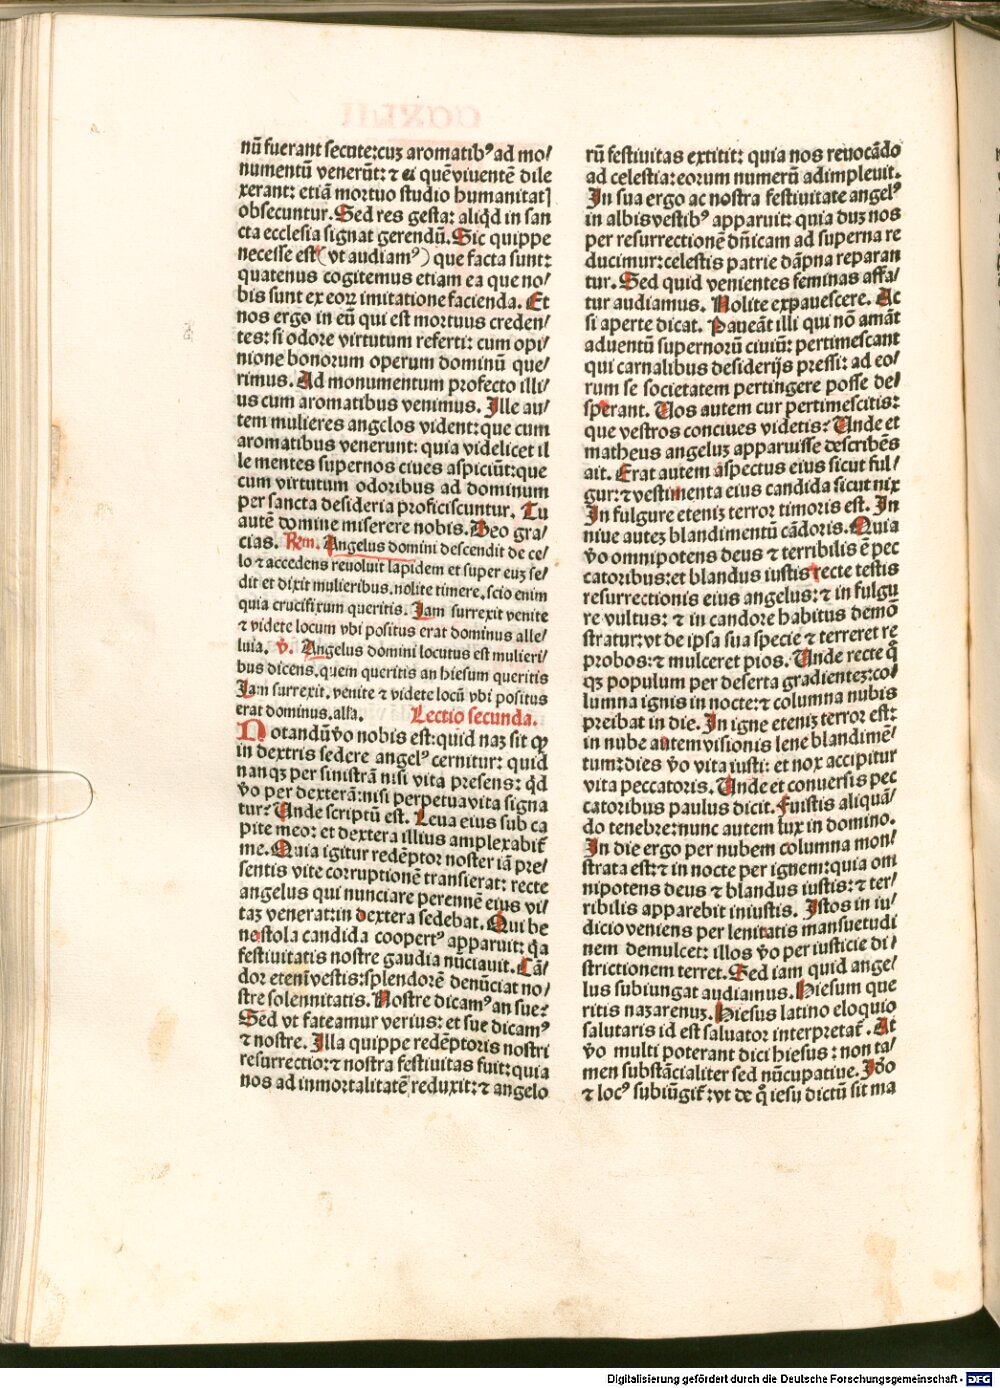 nũ fuerant secute: cuʒ aromatibꝰ ad mo/
numentũ venerũt: ⁊ ei quẽ viuentẽ dile
xerant: etiã mortuo studio humanitat]
obsecuntur. Sed res gesta: aliqͥd in san
cta ecclesia signat gerendũ. Sic quippe
necesse est (vt audiamꝰ) que facta sunt:
quatenus cogitemus etiam ea que no/
bis sunt ex eoꝝ imitatione facienda. Et
nos ergo in eũ qui est mortuus creden/
tes: si odore virtutum referti: cum opi/
nione bonorum operum dominũ que/
rimus. Ad monumentum profecto illi/
us cum aromatibus venimus. Ille au/
tem mulieres angelos vident: que cum
aromatibus venerunt: quia videlicet il
le mentes supernos ciues aspiciũt: que
cum virtutum odoribus ad dominum
per sancta desideria proficiscuntur. Tu
autẽ domine miserere nobis. Deo gra/
cias. Rm. Angelus domini descendit de ce/
lo ⁊ accedens reuoluit lapidem et super euʒ se/
dit et dixit mulieribus. nolite timere. scio enim
quia crucifixum queritis. Iam surrexit venite
⁊ videte locum vbi positus erat dominus alle/
luia. ꝟ. Angelus domini locutus est mulieri/
bus dicens. quem queritis an hiesum queritis
Iam surrexit. venite ⁊ videte locũ vbi positus
erat dominus. alľa. Lectio secunda.
Notandũ ꝟo nobis est: quid naʒ sit ꝙ
in dextris sedere angelꝰ cernitur: quid
nanqʒ per sinistrã nisi vita presens: qͥd
ꝟo per dexterã: nisi perpetua vita signa
tur? Unde scriptũ est. Leua eius sub ca
pite meo: et dextera illius amplexabit᷑
me. Quia igitur redẽptor noster iã pre/
sentis vite corruptionẽ transierat: recte
angelus qui nunciare perennẽ eius vi/
taʒ venerat: in dextera sedebat. Qui be
ne stola candida coopertꝰ apparuit: qͣa
festiuitatis nostre gaudia nũciauit. Cã/
dor etenĩ vestis: splendorẽ denũciat no/
stre solennitatis. Nostre dicamꝰ an sue?
Sed vt fateamur verius: et sue dicamꝰ
⁊ nostre. Illa quippe redẽptoris nostri
resurrectio: ⁊ nostra festiuitas fuit: quia
nos ad inmortalitatẽ reduxit: ⁊ angelo
rũ festiuitas extitit: quia nos reuocãdo
ad celestia: eorum numerũ adimpleuit.
In sua ergo ac nostra festiuitate angelꝰ
in albis vestibꝰ apparuit: quia duʒ nos
per resurrectionẽ dñicam ad superna re
ducimur: celestis patrie dãpna reparan
tur. Sed quid venientes feminas affa/
tur audiamus. Nolite expauescere. Ac
si aperte dicat. Paueãt illi qui nõ amãt
aduentũ supernorũ ciuiũ: pertimescant
qui carnalibus desiderijs pressi: ad eo/
rum se societatem pertingere posse de/
sperant. Uos autem cur pertimescitis:
que vestros conciues videtis? Unde et
matheus angeluʒ apparuisse describẽs
ait. Erat autem aspectus eius sicut ful/
gur: ⁊ vestimenta eius candida sicut nix
In fulgure eteniʒ terror timoris est. In
niue auteʒ blandimentũ cãdoris. Quia
ꝟo omnipotens deus ⁊ terribilis ẽ pec
catoribus: et blandus iustis recte testis
resurrectionis eius angelus: ⁊ in fulgu
re vultus: ⁊ in candore habitus demõ
stratur: vt de ipsa sua specie ⁊ terreret re
probos: ⁊ mulceret pios. Unde recte qͦ
qʒ populum per deserta gradienteʒ: co/
lumna ignis in nocte: ⁊ columna nubis
preibat in die. In igne eteniʒ terror est:
in nube autem visionis lene blandimẽ/
tum: dies ꝟo vita iusti: et nox accipitur
vita peccatoris. Unde et conuersis pec
catoribus paulus dicit. Fuistis aliquã/
do tenebre: nunc autem lux in domino.
In die ergo per nubem columna mon/
strata est: ⁊ in nocte per ignem: quia om
nipotens deus ⁊ blandus iustis: ⁊ ter/
ribilis apparebit iniustis. Istos in iu/
dicio veniens per lenitatis mansuetudi
nem demulcet: illos ꝟo per iusticie di/
strictionem terret. Sed iam quid ange/
lus subiungat audiamus. Hiesum que
ritis nazarenuʒ. Hiesus latino eloquio
salutaris id est saluator interpretat᷑. At
ꝟo multi poterant dici hiesus: non ta/
men substãcialiter sed nũcupatiue. Iꝺo
⁊ locꝰ subiũgit᷑: vt de qͦ iesu dictũ sit ma
Digitalisierung gefördert durch die Deutsche Forschungsgemeinschaft - DFG